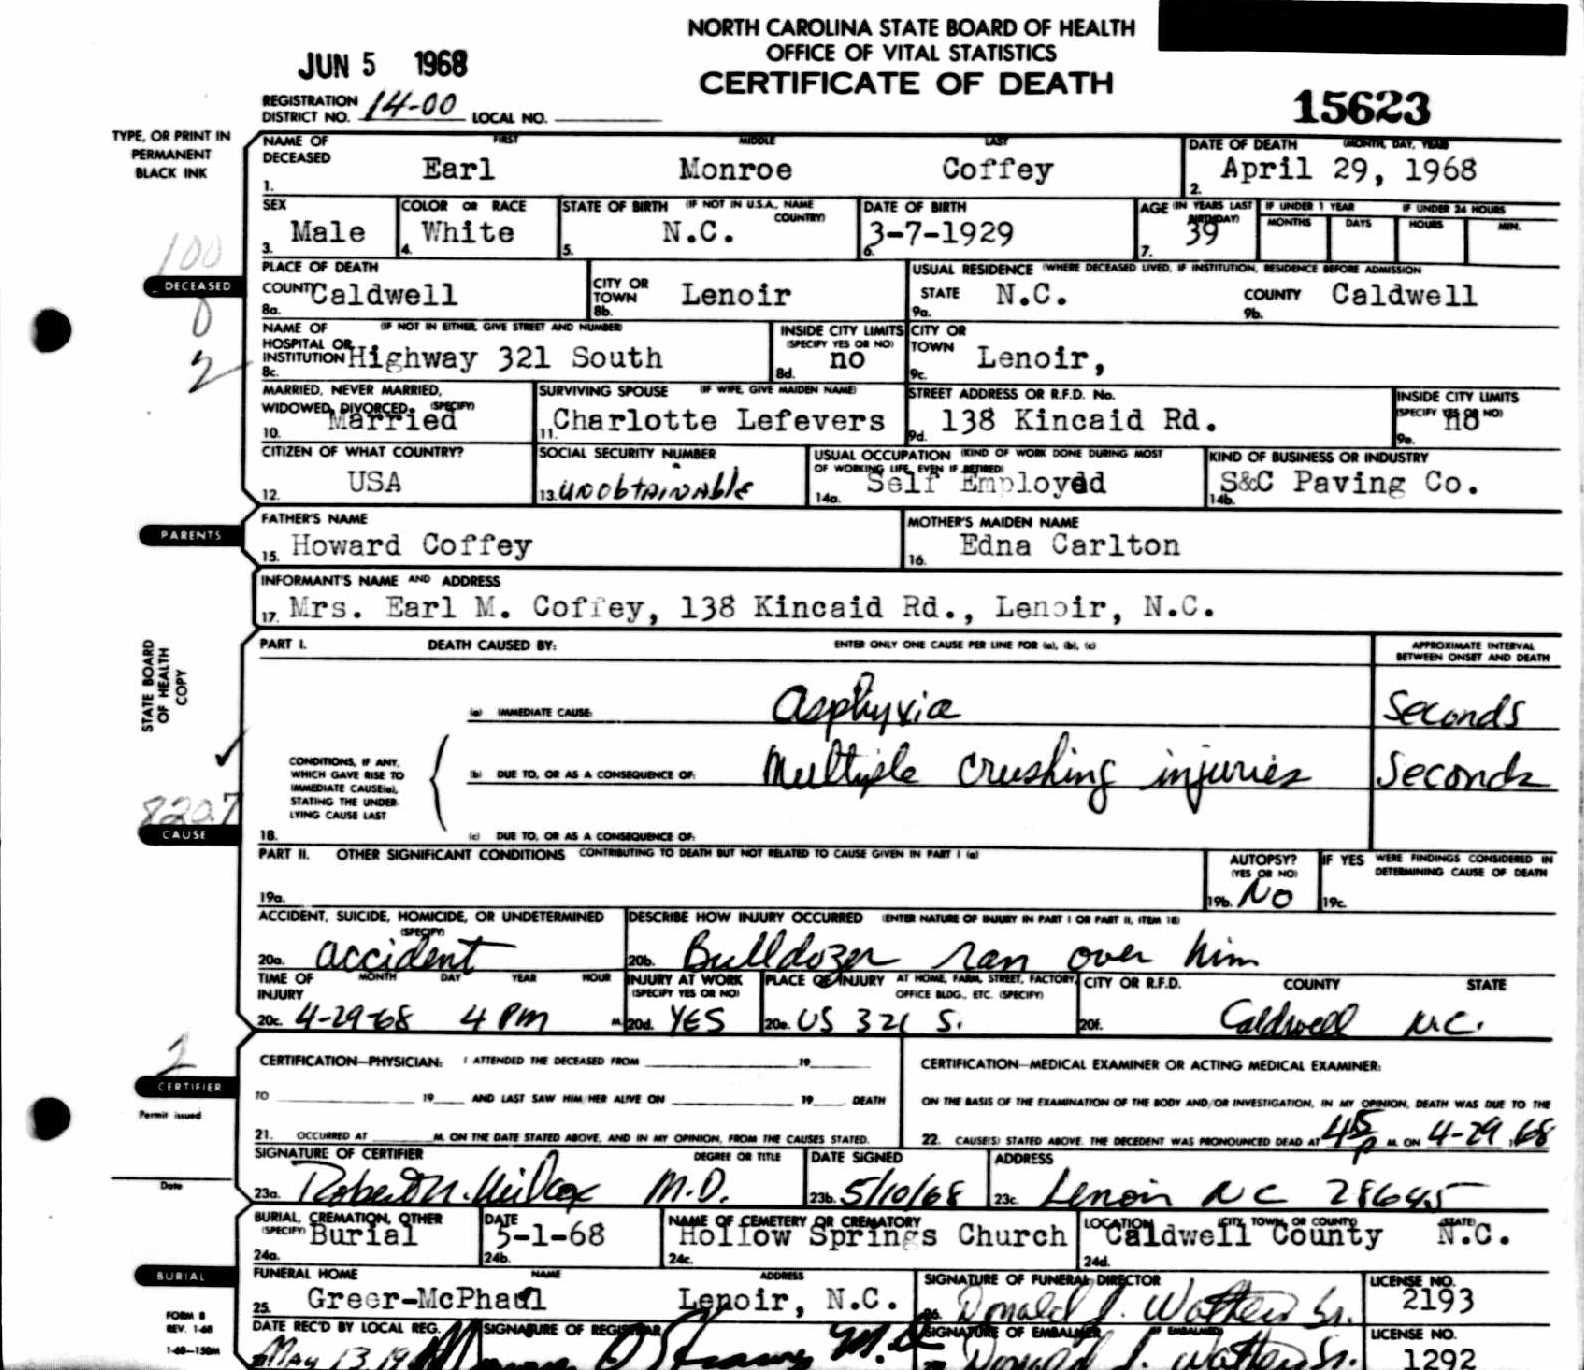 NORTH CAROLINA STATE BOARD OF HEALTH
OFFICE OF VITAL STATISTICS
CERTIFICATE OF DEATH
JUN 5 1968
15623
REGISTRATION DISTRICT NO. 14-00 LOCAL NO.
TYPE, OR PRINT IN
PERMANENT
BLACK INK
NAME OF DECEASED FIRST MIDDLE LAST
1. Earl Monroe Coffey
DATE OF DEATH (MONTH, DAY, YEAR)
2. April 29, 1968
SEX
3. Male
COLOR OR RACE
4. White
STATE OF BIRTH (IF NOT IN U.S.A., NAME COUNTRY)
5. N.C.
DATE OF BIRTH
6. 3-7-1929
AGE (IN YEARS LAST BIRTHDAY)
7. 39
IF UNDER 1 YEAR
MONTHS DAYS
IF UNDER 24 HOURS
HOURS MIN.
100
DECEASED
0
2
PLACE OF DEATH
COUNTY Caldwell
8a.
CITY OR TOWN Lenoir
8b.
USUAL RESIDENCE (WHERE DECEASED LIVED, IF INSTITUTION, RESIDENCE BEFORE ADMISSION
STATE N.C.
9a.
COUNTY Caldwell
9b.
NAME OF HOSPITAL OR INSTITUTION (IF NOT IN EITHER, GIVE STREET AND NUMBER)
8c. Highway 321 South
INSIDE CITY LIMITS (SPECIFY YES OR NO)
8d. no
CITY OR TOWN
9c. Lenoir,
MARRIED, NEVER MARRIED, WIDOWED, DIVORCED, (SPECIFY)
10. Married
SURVIVING SPOUSE (IF WIFE, GIVE MAIDEN NAME)
11. Charlotte Lefevers
STREET ADDRESS OR R.F.D. No.
9d. 138 Kincaid Rd.
INSIDE CITY LIMITS (SPECIFY YES OR NO)
9e. no
CITIZEN OF WHAT COUNTRY?
12. USA
SOCIAL SECURITY NUMBER
13. unobtainable
USUAL OCCUPATION (KIND OF WORK DONE DURING MOST OF WORKING LIFE, EVEN IF RETIRED)
14a. Self Employed
KIND OF BUSINESS OR INDUSTRY
14b. S&C Paving Co.
PARENTS
FATHER'S NAME
15. Howard Coffey
MOTHER'S MAIDEN NAME
16. Edna Carlton
INFORMANT'S NAME AND ADDRESS
17. Mrs. Earl M. Coffey, 138 Kincaid Rd., Lenoir, N.C.
STATE BOARD
OF HEALTH
COPY
PART I. DEATH CAUSED BY: ENTER ONLY ONE CAUSE PER LINE FOR (a), (b), (c)
APPROXIMATE INTERVAL
BETWEEN ONSET AND DEATH
(a) IMMEDIATE CAUSE: Asphyxia Seconds
CONDITIONS, IF ANY,
WHICH GAVE RISE TO
IMMEDIATE CAUSE(a),
STATING THE UNDER-
LYING CAUSE LAST
(b) DUE TO, OR AS A CONSEQUENCE OF: Multiple crushing injuries Seconds
CAUSE
18. (c) DUE TO, OR AS A CONSEQUENCE OF:
PART II. OTHER SIGNIFICANT CONDITIONS CONTRIBUTING TO DEATH BUT NOT RELATED TO CAUSE GIVEN IN PART I (a)
19a.
AUTOPSY? (YES OR NO)
19b. NO
IF YES WERE FINDINGS CONSIDERED IN DETERMINING CAUSE OF DEATH
19c.
ACCIDENT, SUICIDE, HOMICIDE, OR UNDETERMINED (SPECIFY)
20a. accident
DESCRIBE HOW INJURY OCCURRED (ENTER NATURE OF INJURY IN PART I OR PART II, ITEM 18)
20b. Bulldozer ran over him
TIME OF INJURY MONTH DAY YEAR HOUR
20c. 4-29-68 4 PM M.
INJURY AT WORK (SPECIFY YES OR NO)
20d. YES
PLACE OF INJURY AT HOME, FARM, STREET, FACTORY, OFFICE BLDG., ETC. (SPECIFY)
20e. US 321 S.
CITY OR R.F.D. COUNTY STATE
20f. Caldwell N.C.
2
CERTIFIER
Permit issued
Date
CERTIFICATION—PHYSICIAN: I ATTENDED THE DECEASED FROM 19
TO 19 AND LAST SAW HIM/HER ALIVE ON 19 DEATH
21. OCCURRED AT M. ON THE DATE STATED ABOVE, AND IN MY OPINION, FROM THE CAUSES STATED.
CERTIFICATION—MEDICAL EXAMINER OR ACTING MEDICAL EXAMINER:
ON THE BASIS OF THE EXAMINATION OF THE BODY AND/OR INVESTIGATION, IN MY OPINION, DEATH WAS DUE TO THE
22. CAUSE(S) STATED ABOVE. THE DECEDENT WAS PRONOUNCED DEAD AT 4 15 P M. ON 4-29, 68
SIGNATURE OF CERTIFIER DEGREE OR TITLE
23a. M.D.
DATE SIGNED
23b. 5/10/68
ADDRESS
23c. Lenoir NC 28645
BURIAL, CREMATION, OTHER (SPECIFY)
24a. Burial
DATE
24b. 5-1-68
NAME OF CEMETERY OR CREMATORY
24c. Hollow Springs Church
LOCATION (CITY, TOWN, OR COUNTY) (STATE)
24d. Caldwell County N.C.
BURIAL
FUNERAL HOME NAME ADDRESS
25. Greer-McPhaul Lenoir, N.C.
SIGNATURE OF FUNERAL DIRECTOR
26. Donald J.
LICENSE NO.
2193
FORM 8
REV. 1-68
1-68—150M
DATE REC'D BY LOCAL REG.
May 13, 19
SIGNATURE OF REGISTRAR
M.D.
SIGNATURE OF EMBALMER IF EMBALMED
Donald J.
LICENSE NO.
1292